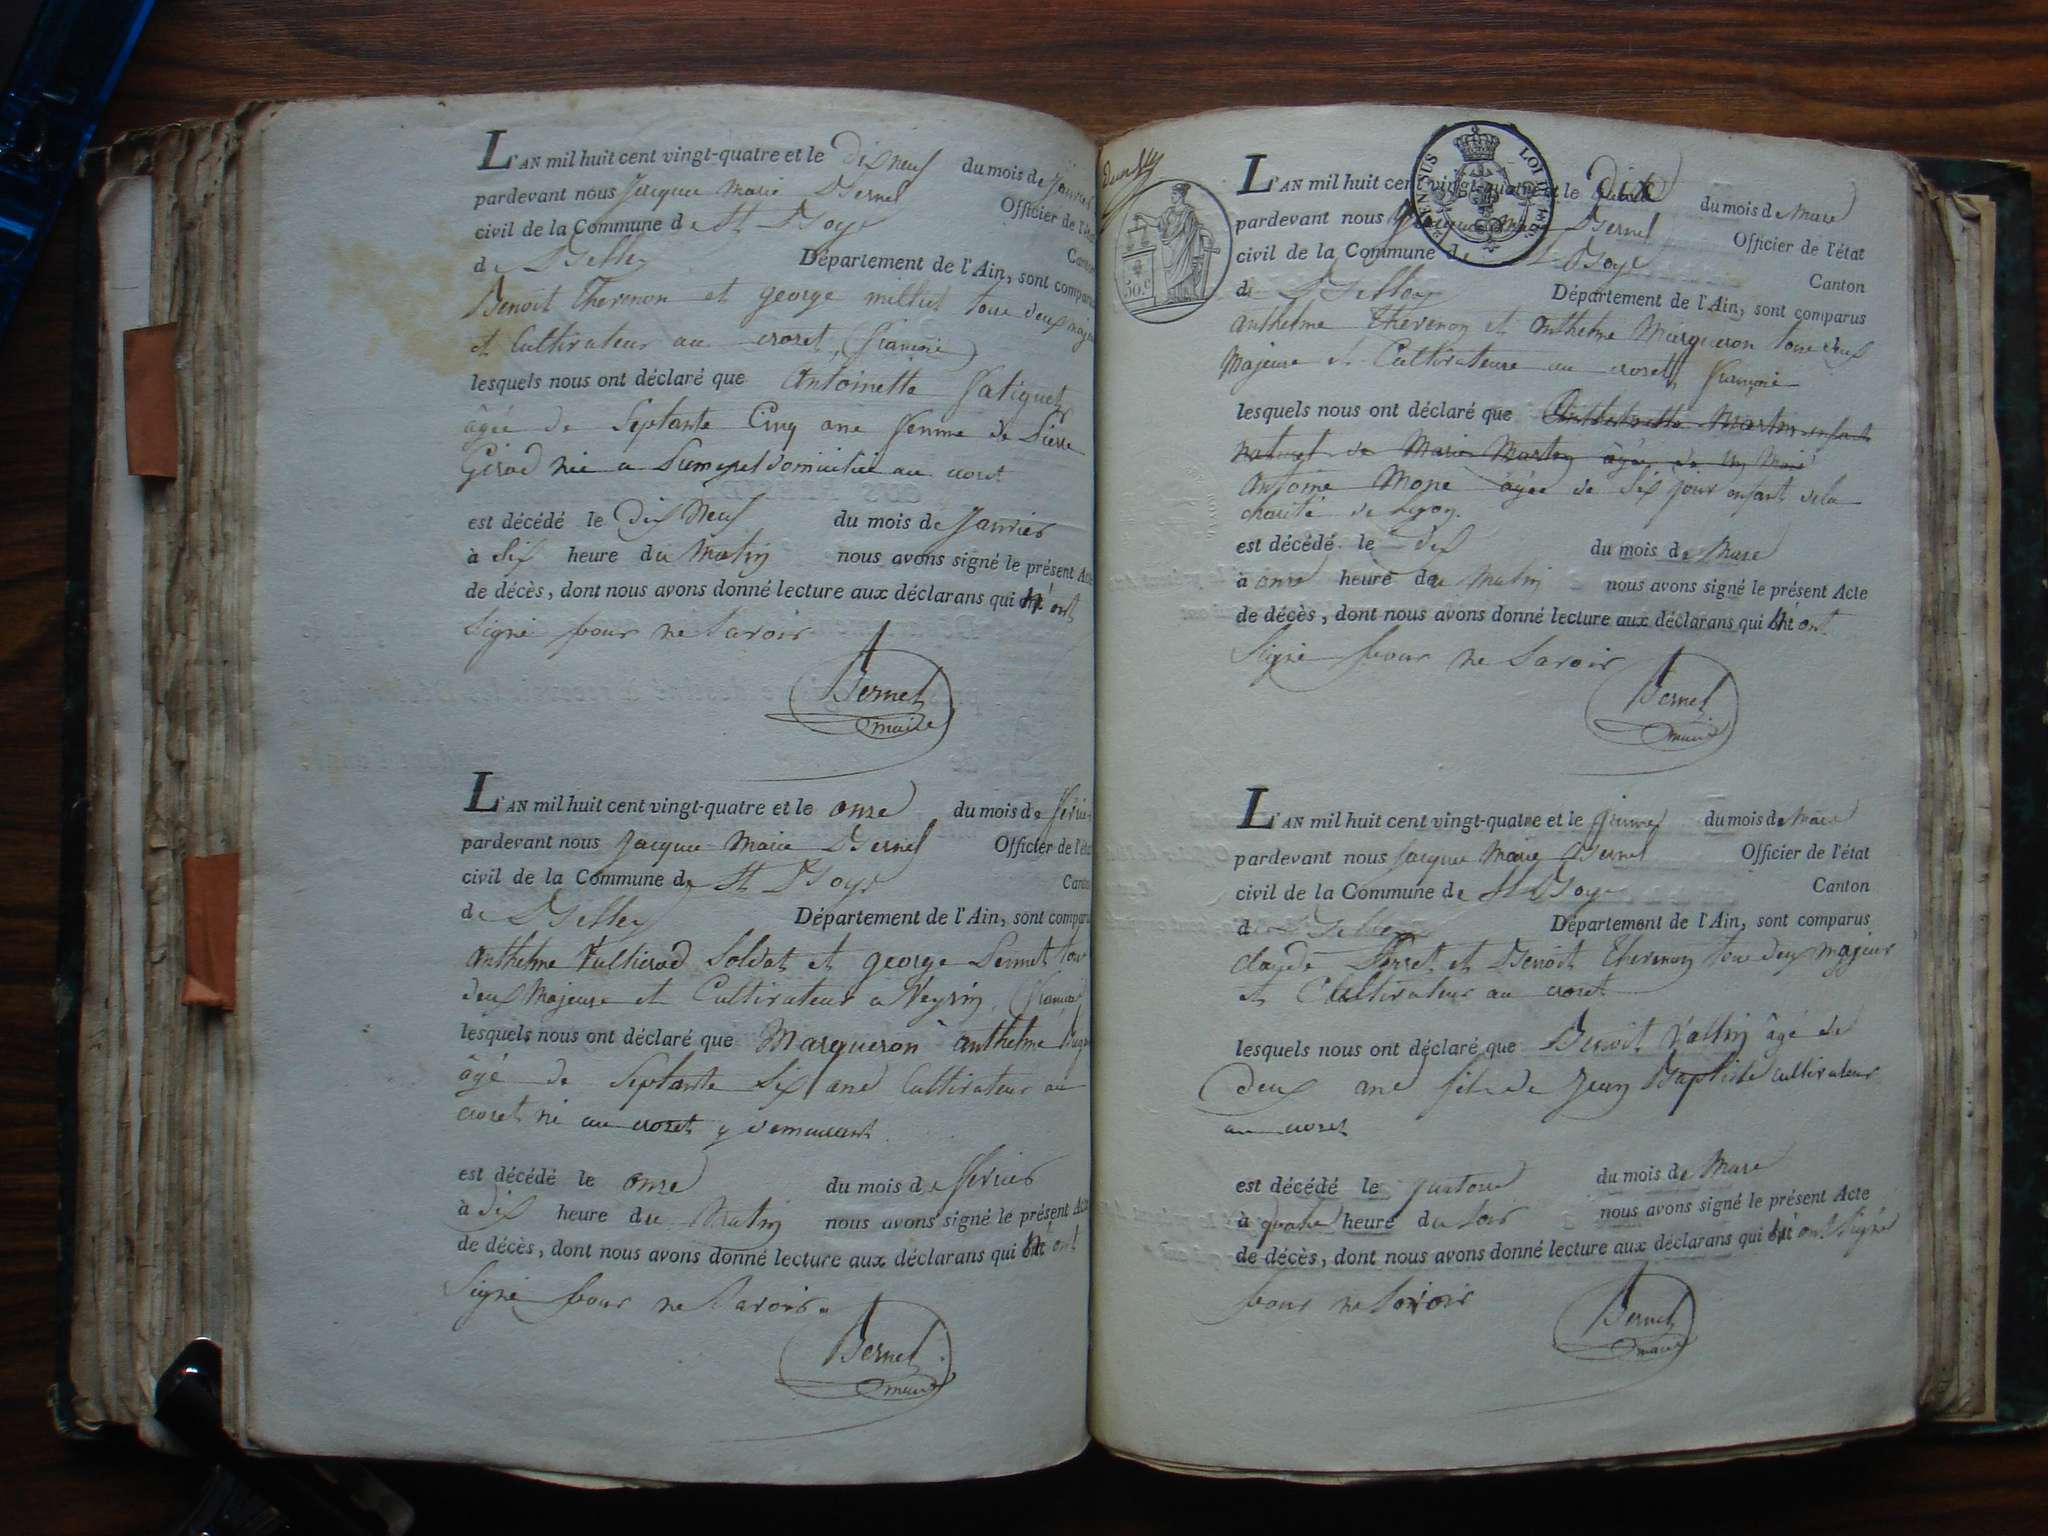 L'AN mil huit cent vingt-quatre et le dix neuf du mois de Janvier
pardevant nous Jacque Marie Bernet Officier de l'état
civil de la Commune de St Boys Canton
de Belley Département de l'Ain, sont comparus
Benoit Thevenon et george milliet tous deux majeur
et Cultivateur au croset (francois)
lesquels nous ont déclaré que Antoinette
âgée de Septante Cinq ans femme de Pierre
Girod née a domiciliée au croset
est décédé le dix neuf du mois de Janvier
à Six heure du Matin nous avons signé le présent Acte
de décès, dont nous avons donné lecture aux déclarans qui n'ont
Signé pour ne Savoir
Bernet
maire
L'AN mil huit cent vingt-quatre et le onze du mois de fevrier
pardevant nous Jacque Marie Bernet Officier de l'état
civil de la Commune de St Boys Canton
de Belley Département de l'Ain, sont comparus
Anthelme Vullierod Soldat et george tous
deux Majeurs et Cultivateur a Veyrin (francois)
lesquels nous ont déclaré que Margueron anthelme
âgé de Septante Six ans Cultivateur au
croset né au croset y demeurant
est décédé le onze du mois de fevrier
à dix heure du Matin nous avons signé le présent Acte
de décès, dont nous avons donné lecture aux déclarans qui n'ont
Signé pour ne Savoir.
Bernet
maire
50.c
LOI DE
L'AN mil huit cent vingt-quatre et le dix du mois de Mars
pardevant nous Jacque Marie Bernet Officier de l'état
civil de la Commune de St Boys Canton
de Belley Département de l'Ain, sont comparus
Anthelme Thevenon et Anthelme Margueron tous deux
Majeurs et Cultivateurs au croset francois
lesquels nous ont déclaré que Martin enfant
naturel de Marie Martin âgée de un Mois
Antoine Mone âgée de Six jour enfant de la
charité de Lyon.
est décédé le dix du mois de Mars
à onze heure du Matin nous avons signé le présent Acte
de décès, dont nous avons donné lecture aux déclarans qui n'ont
Signé pour ne Savoir
Bernet
maire
L'AN mil huit cent vingt-quatre et le quinze du mois de Mars
pardevant nous Jacque Marie Bernet Officier de l'état
civil de la Commune de St Boys Canton
de Belley Département de l'Ain, sont comparus
claude Perret et Benoit Thevenon tous deux majeur
et Cultivateur au croset
lesquels nous ont déclaré que Benoit Vallin âgé de
deux ans fils de Jean Baptiste cultivateur
au croset
est décédé le quatorze du mois de Mars
à quatre heure du Soir nous avons signé le présent Acte
de décès, dont nous avons donné lecture aux déclarans qui n'ont Signé
pour ne Savoir
Bernet
maire